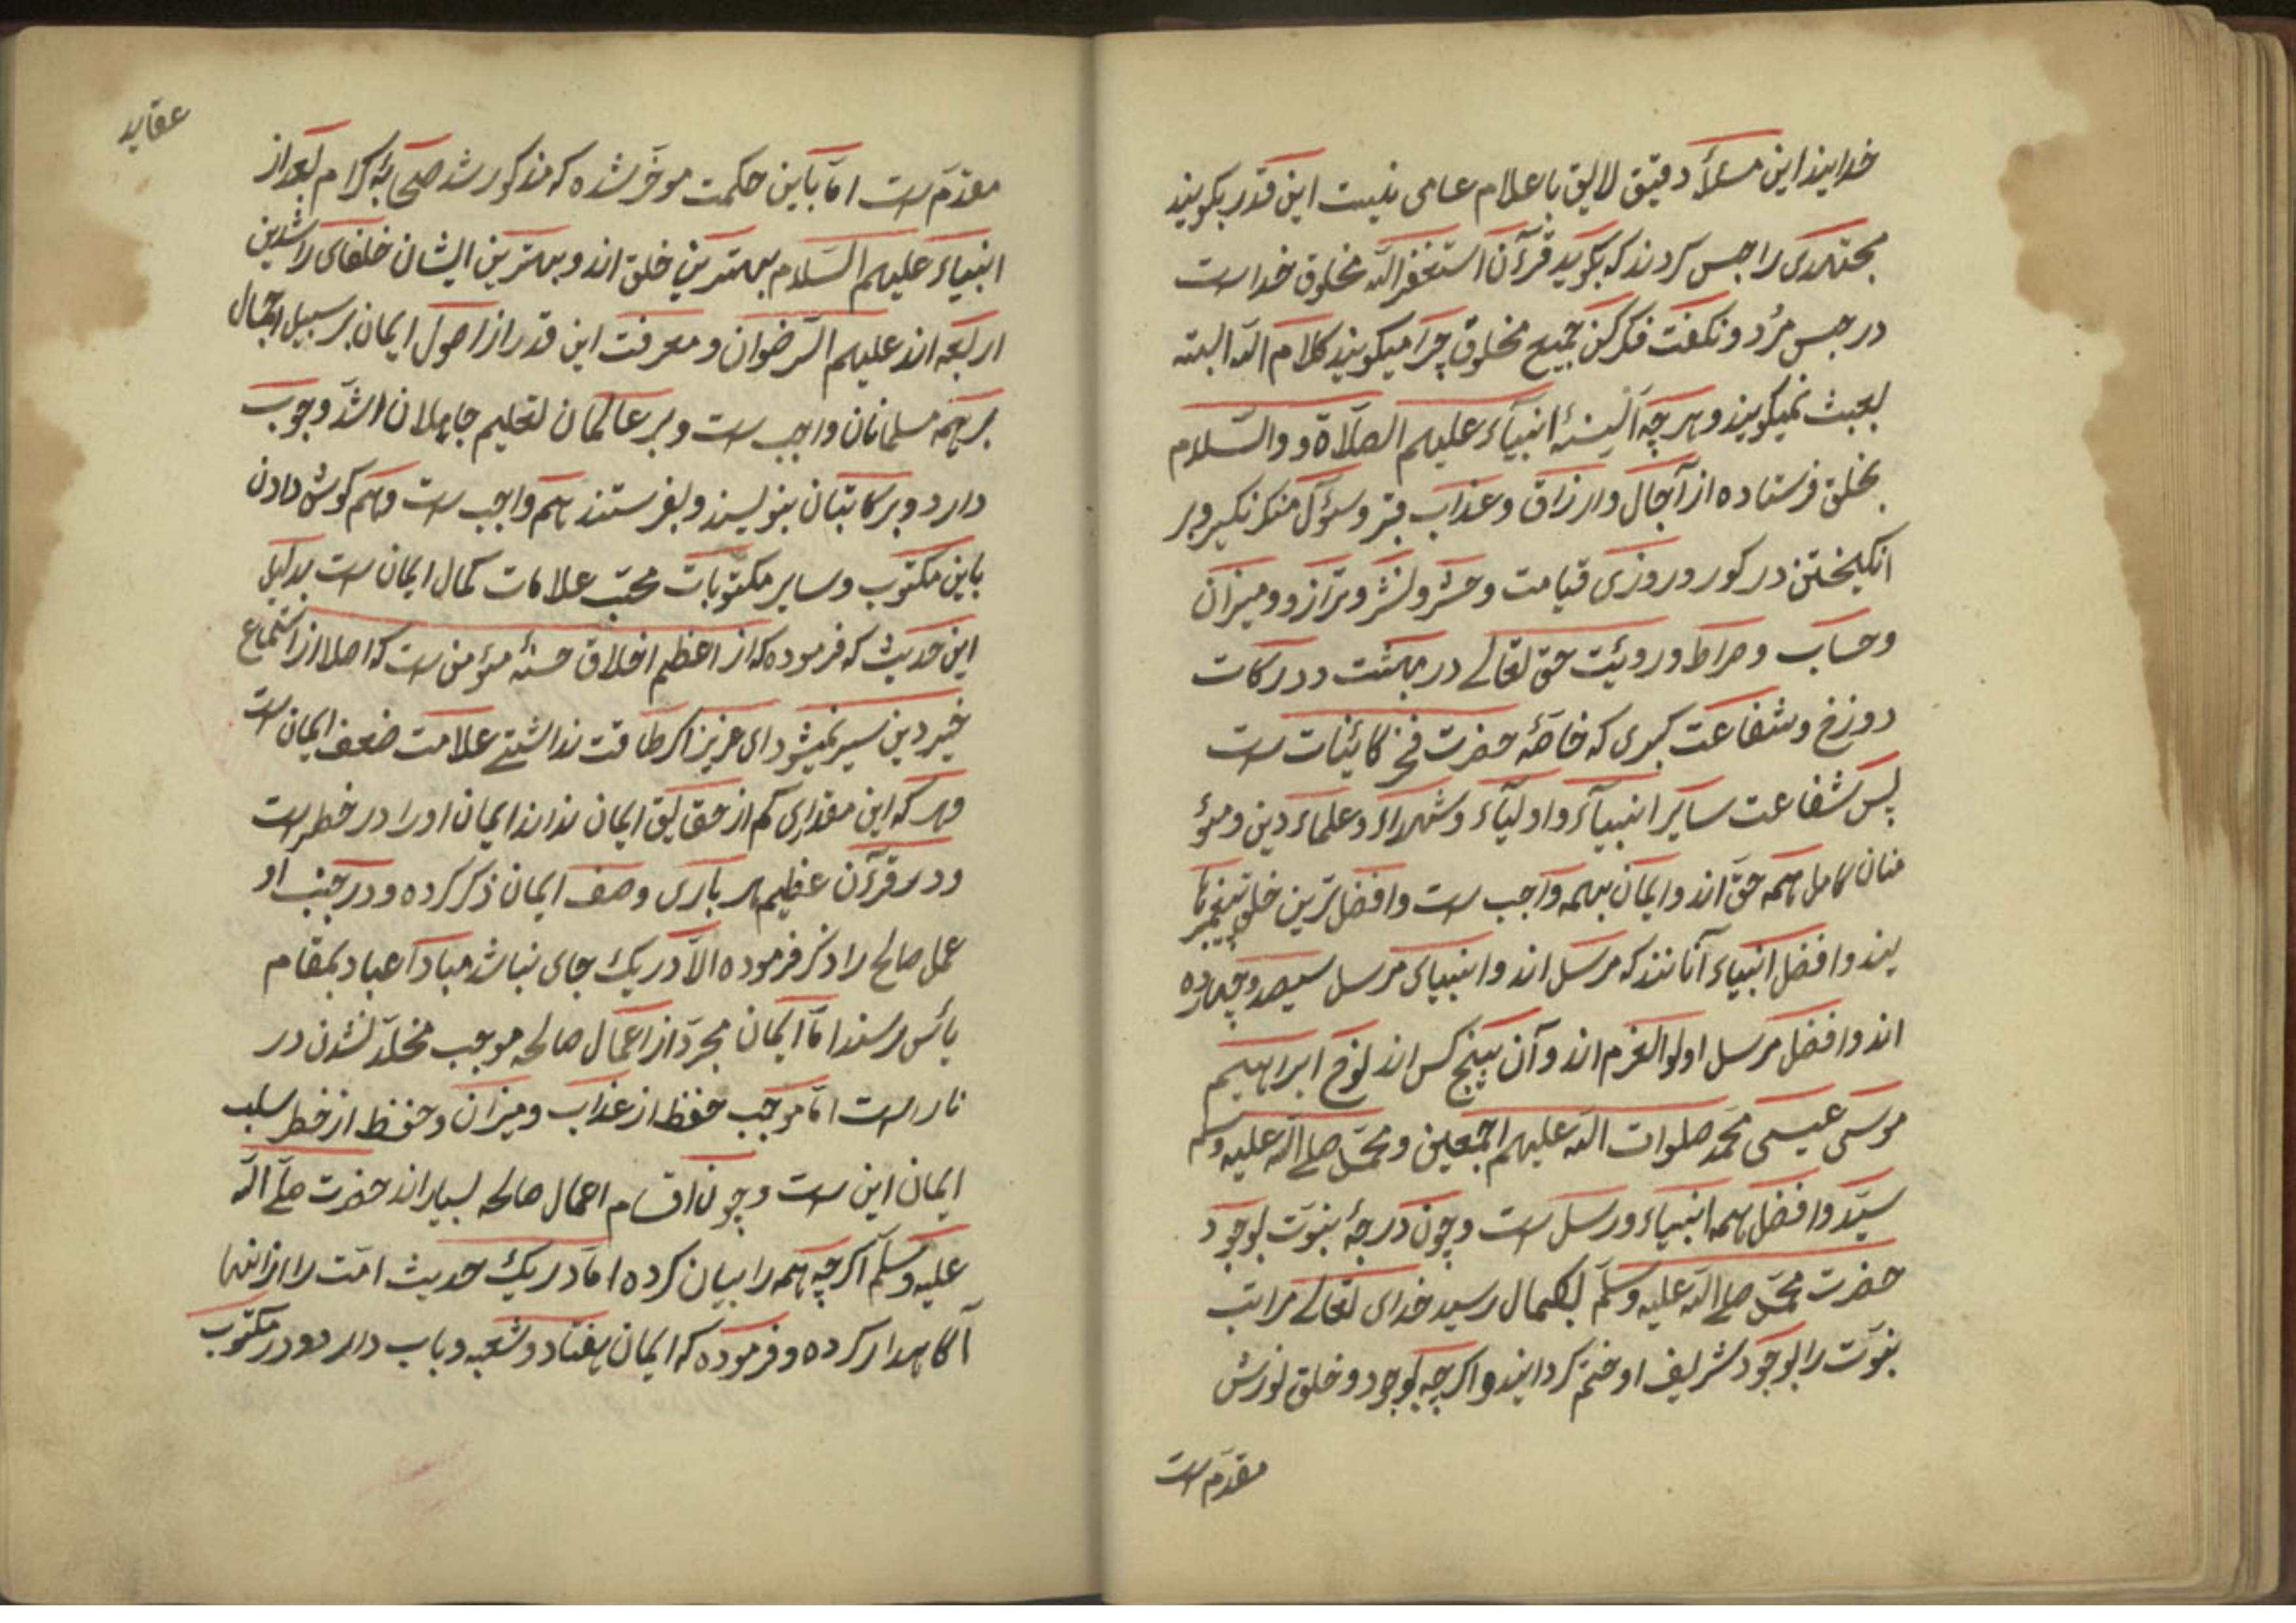 خدایند این مسئلهٔ دقیق لایق باعلام عامی نیست این قدر بکویند
مجتهدی را حبس کردند که بکوید قرآن استغفر الله مخلوق خداست
در حبس مرد و نکفت فکر کن جمیع مخلوق چرا میکویند کلام الله البته
بعبث نمیکویند و هرچه آلسنهٔ انبیآء علیهم الصلاة و والسلام
بخلق فرستاده از آجال و ارزاق و عذاب قبر و سؤال منکر نکیر و بر
انکیختن در کور و روزی قیامت و حشر و نشر و ترازو و میزان
و حساب و صراط و رویت حق تعالی در بهشت و درکات
دوزخ و شفاعت کبری که خاصهٔ حضرت فخر کاینات ست
پس شفاعت سایر انبیآء و اولیآء و شهداء و علماء دین و مؤ
منان کامل همه حق اند و ایمان بهمه واجب ست و افضل ترین خلق پیغمبرها
یند و افضل انبیاء آنانند که مرسل اند و انبیای مرسل سیصد و چهارده
اند و افضل مرسل اولوالعزم اند و آن پنج کس اند نوح ابراهیم
موسی عیسی محمد صلوات الله علیهم اجمعین و محمد صلے الله علیه وسلم
سید و افضل همه انبیاء و رسل ست و چون درجهٔ نبوت بوجود
حضرت محمد صلے الله علیه وسلم بکمال رسید خدای تعالے مراتب
نبوت را بوجود شریف او ختم کردایند و اکرچه بوجود و خلق نورش
مقدم است
عقاید
مقدم ست اما باین حکمت موخر شده که مذکور شد صحابهٔ کرام بعد از
انبیاء علیهم السلام بهترین خلق اند و بهترین ایشان خلفای راشدین
اربعه اند علیهم الرضوان و معرفت این قدر از اصول ایمان بر سبیل اجمال
بر همه مسلمانان واجب ست و بر عالمان تعلیم جاهلان اشد وجوب
دارد و بر کاتبان بنویسند و بفرستند هم واجب ست و هم کوش دادن
باین مکتوب و سایر مکتوبات محب علامات کمال ایمان ست بدلیل
این حدیث که فرموده که از اعظم اخلاق حسنهٔ مؤمن ست که اصلا از استماع
خیر دین سیر نمیشود ای عزیز اکر طاقت نداشتے علامت ضعف ایمان ست
وهر که این مقداری کم از حقایق ایمان نداند ایمان او را در خطر است
و در قرآن عظیم هر باری وصف ایمان ذکر کرده و در جنب او
عمل صالح را ذکر فرموده الا در یک جای نباشد مبادا عباد بمقام
یائس رسند اما ایمان مجرد از اعمال صالحه موجب مخلد نشدن در
نار است اما موجب حفظ از عذاب و میزان و حفظ از خطر سلب
ایمان این ست و چون اقسام اعمال صالحه بسیار اند حضرت صلے الله
علیه وسلم اکرچه همه را بیان کرده اما در یک حدیث امت را از اینها
آکاه‌دار کرده و فرموده که ایمان هفتاد و شعبه و باب دارد و در مکتوب